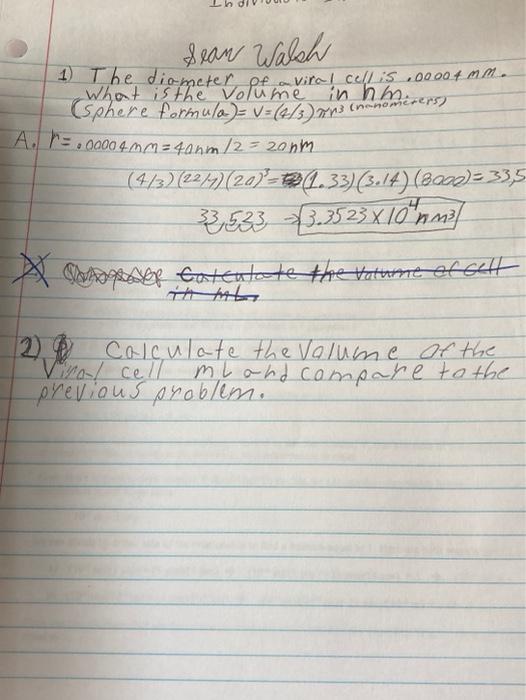 Sean Walsh
1) The diameter of a viral cell is .00004 mm.
What is the volume in nm.
(sphere formula)= V=(4/3)πr³ (nanometers)
A. r= .00004mm=40nm/2=20nm
(4/3)(22/7)(20)³= (1.33)(3.14)(8000)=33,5
33,523 → 3.3523 x 10⁴ nm³
Calculate the volume of cell
in mL
2) Calculate the volume of the
viral cell mL and compare to the
previous problem.